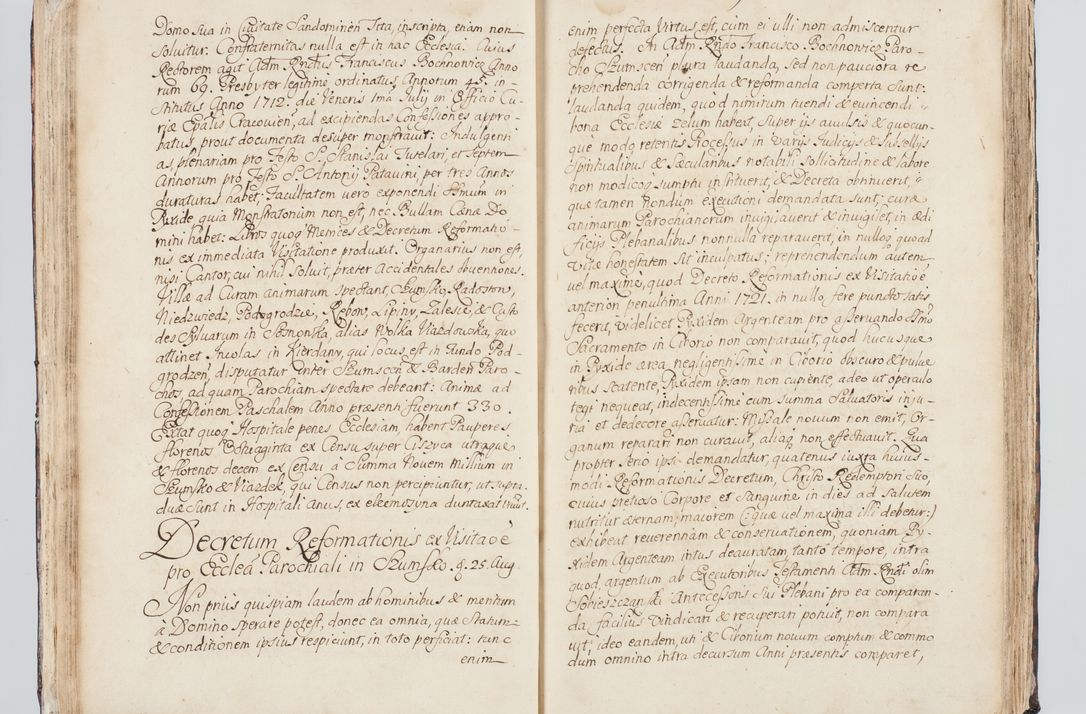 Domo sua in Civitate Sandominen Sita, inscripta, etiam non
solvitur. Confraternitas nulla est in hac Ecclesia. Cuius
Rectorem agit Adm. Rndus Franciscus Bochnowicz Anno
rum 69. Presbyter legitime ordinatus, Annorum 45. in
stitutus Anno 1712. die Veneris 1ma Julij in Officio Cu-
riæ Epalis Cracovien, ad excipiendas Confessiones appro-
batus, prout documenta desuper monstravit. Indulgenti
as, plenariam pro Festo S. Stanislai Tutelari, et Septem
Annorum pro Festo S. Antonij Patavini, per tres Annos
duraturas habet; Facultatem vero exponendi SSmum in
Pyxide, quia Monstratorium non est, nec Bullam Cænæ Do
mini habet: Libros quoq Metrices & Decretum Reformatio-
nis ex immediata Visitatione produxit. Organarius non est,
nisi Cantor, cui nihil solvit, præter Accidentales obvenhones.
Villæ ad Curam animarum spectant, Szumsko, Radostow,
Niedzwiedz, Podgrodzie, Rębow, Lipiny, Zalesie, & Custo
des Sylvarum in alias Wolka Wiazdowska, quo
attinet Incolas in Kierdany, qui locus est in fundo Pod-
grodzen, disputatur inter Szumscen & Barden Paro-
chos, ad quam Parochiam spectare debeant: Animæ ad
Confessionem Paschalem Anno præsenti fuerunt 330.
Extat quoq Hospitale penes Ecclesiam, habent Pauperes
florenos Octuaginta ex Censu super utraque
& florenos decem ex censu à Summa Novem millium in
Szumsko & Viazdek, qui Census non percipiuntur, ut supra.
duæ Sunt in Hospitali Anus, ex eleemosyna duntaxat
Decretum Reformationis ex Visitaõe
pro Ecclea Parochiali in Szumsko. 9. 25. Aug
Non prius quispiam laudem ab hominibus & meritum
à Domino sperare potest, donec ea omnia, quæ Statum
& conditionem ipsius respiciunt, in toto perficiat: tunc
enim
enim perfecta Virtus est, cum ei ulli non admiscentur
defectus. In Adm. Rndo Francisco Bochnowicz Paro-
cho Szumscen plura laudanda, sed non pauciora re
prehendenda corrigenda & reformanda comperta Sunt:
laudanda quidem, quod nimirum tuendi & evincendi
bona Ecclesiæ zelum habeat, super ijs avulsis & quocun-
què modo retentis Processus in varijs Judicijs & Subsellijs
Spiritualibus & Sæcularibus notabili sollicitudine & labore
non modicoq sumptu instituerit, & Decreta obtinuerit,
quæ tamen nondum executioni demandata sunt; curæ
animarum Parochianorum invigilaverit & invigilet, in ædi
ficijs Plebanalibus nonnulla reparaverit, in nulloq quoad
Vitæ honestatem sit inculpatus; reprehendendum autem
vel maximè, quod Decreto Reformationis ex Visitatioe
anteriori penultima Anni 1721. in nullo ferè puncto satis
fecerit, videlicet Pyxidem Argenteam pro asservando SSmo
Sacramento in Ciborio non comparavit, quod hucusque
in Pyxide ærea negligentissimè in Ciborio obscuro & pulve
ribus scatente, Pyxidem ipsam non capiente, adeo ut operculo
tegi nequeat, indecentissimè cum summa Salvatoris inju-
ria et dedecore asservatur: Missale novum non emit, Or-
ganum reparari non curavit, aliaq non effectuavit. Qua
propter serio ipsi demandatur, quatenus iuxta huius-
modi Reformationis Decretum, Christo Redemptori suo,
cuius pretioso Corpore et Sanguine in dies ad Salutem
nutritur æternam, maiorem (: quæ vel maxima illi debetur:)
exhibeat reverentiam & conservationem, quoniam Py-
xidem Argenteam intus deauratam, tantò tempore, intra
quod argentum ab Executoribus Testamenti Adm. Rndi olim
Sobieszczanski Antecessoris Sui Plebani pro ea comparan-
da, facilius vindicari & recuperari potuit, non compara
vit, ideo eandem, uti & Ciborium novum comptum & commo
dum omnino intra decursum Anni præsentis comparet,